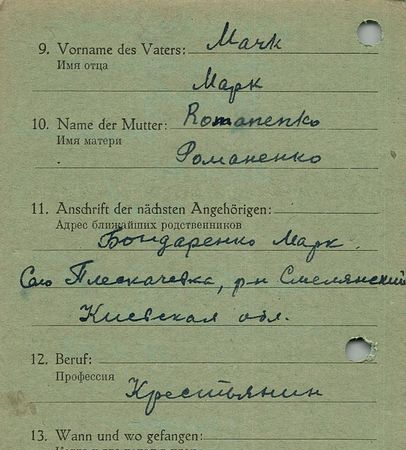 9. Vorname des Vaters: Матк
Имя отца
Марк
10. Name der Mutter: Romanenko
Имя матери
Романенко
11. Anschrift der nächsten Angehörigen:
Адрес ближайших родственников
Бондаренко Марк.
Село Плескачевка, р-н Смелянский
Киевская обл.
12. Beruf:
Профессия
Крестьянин
13. Wann und wo gefangen: